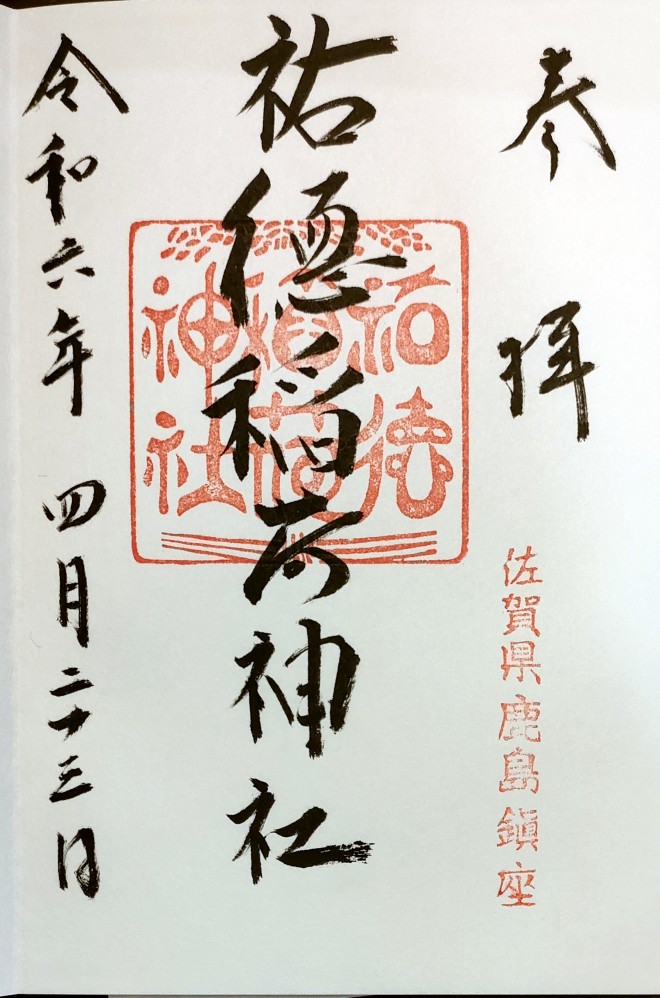 奉拝
佐賀県鹿島鎮座
祐徳稲荷神社
祐徳
稲荷
神社
令和六年 四月二十三日